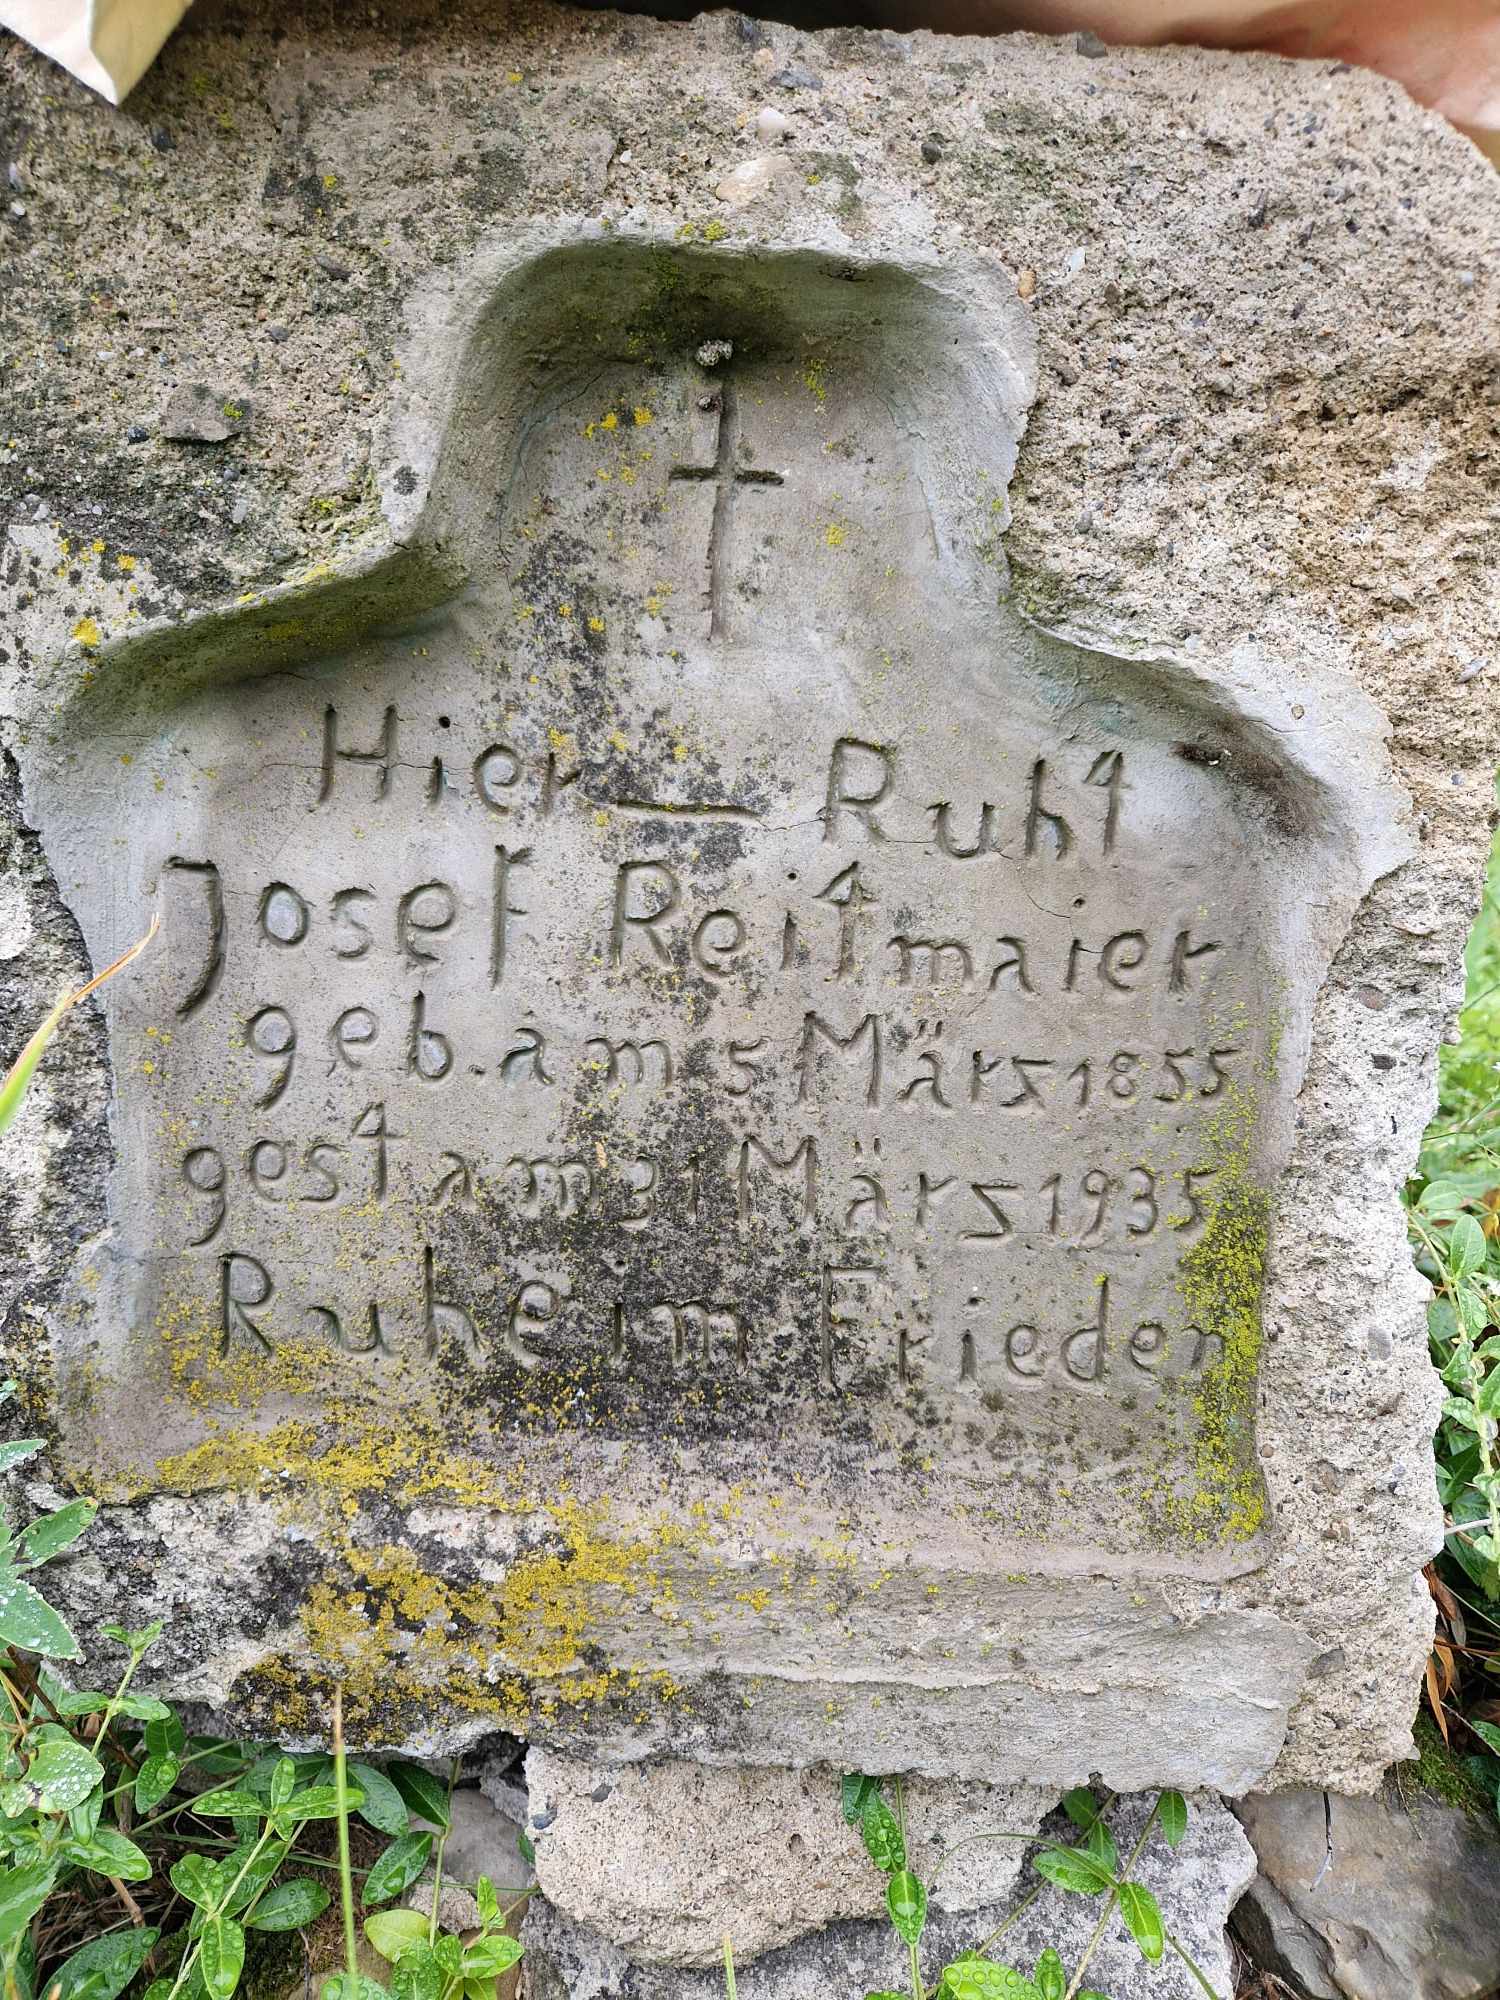 Hier — Ruht
Josef Reitmaier
geb. am 5 März 1855
gest am 31 März 1935
Ruhe im Frieden